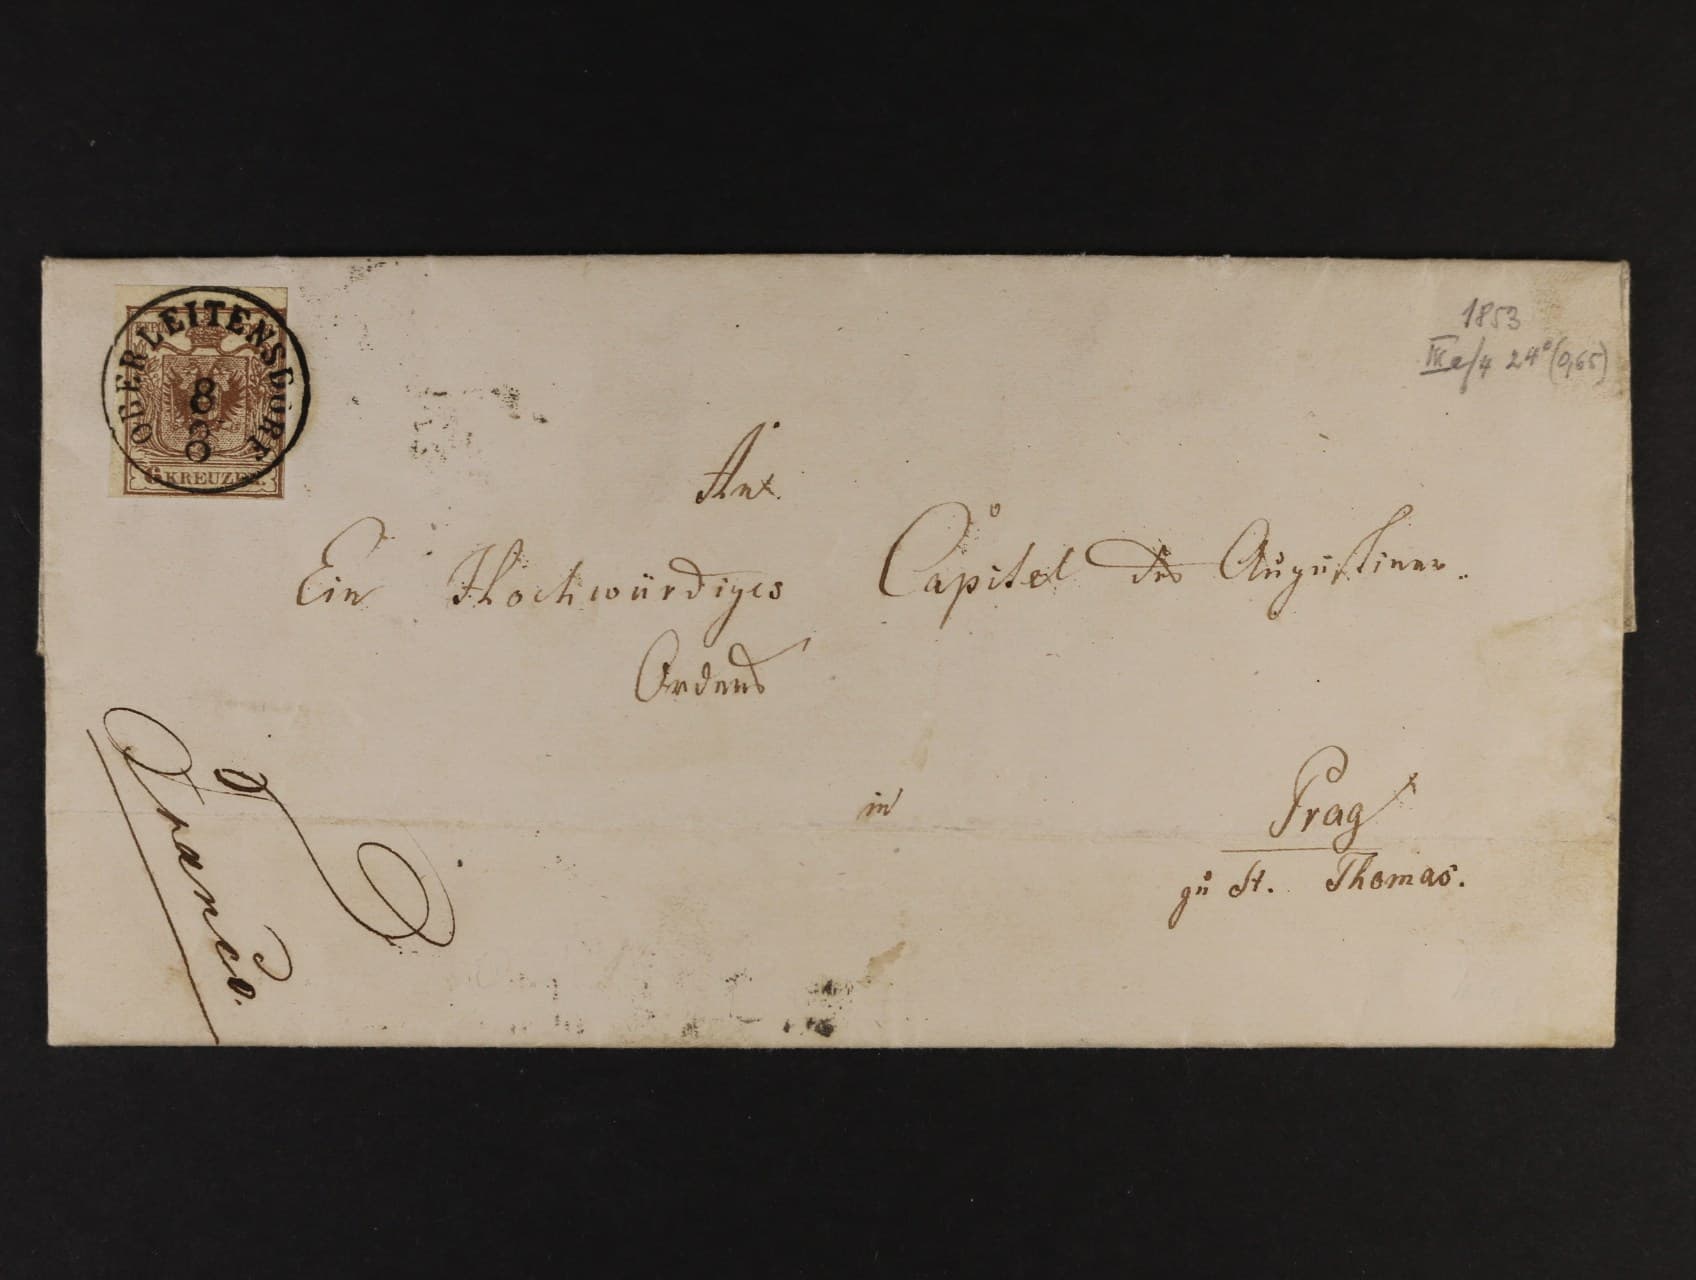 OBERLEITENSDORF
8
8
6 KREUZER.
1853
III e/4 24° (0,65)
An
Ein Hochwürdiges Capitel des Augustiner
Ordens
in Prag
zu St. Thomas.
Franco.